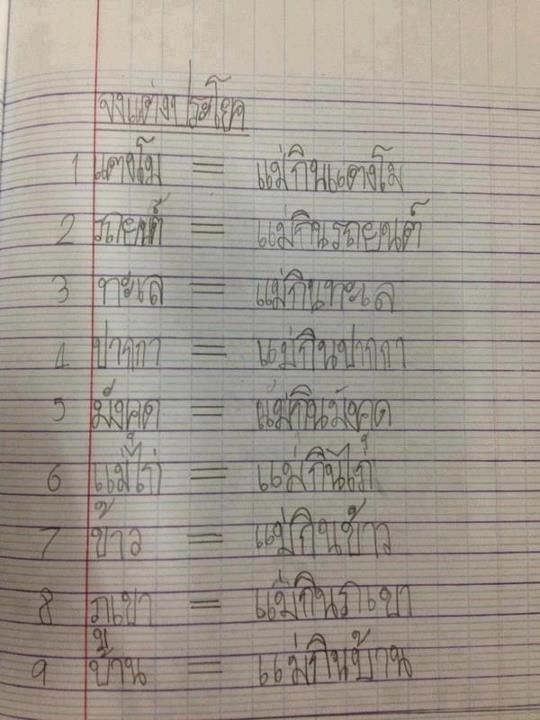 จงแต่งประโยค
1 แตงโม = แม่กินแตงโม
2 รถยนต์ = แม่กินรถยนต์
3 ทะเล = แม่กินทะเล
4 ปากกา = แม่กินปากกา
5 มังคุด = แม่กินมังคุด
6 แม่ไก่ = แม่กินไก่
7 ข้าว = แม่กินข้าว
8 ภูเขา = แม่กินภูเขา
9 บ้าน = แม่กินบ้าน